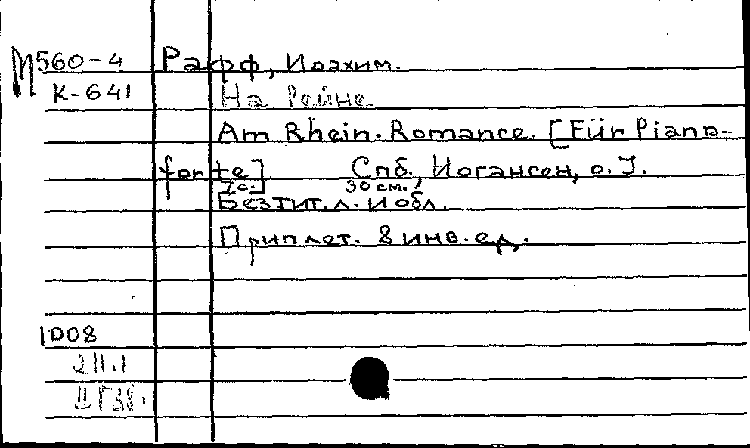 М560-4 Рафф, Иоахим.
К-641 На Рейне.
Am Rhein. Romance. [Für Piano-
forte] Спб., Иогансен, о. J.
7с.] 30 см.
Без тит. л. и обл.
Приплет. 8 инв. ед.
1008
211.1